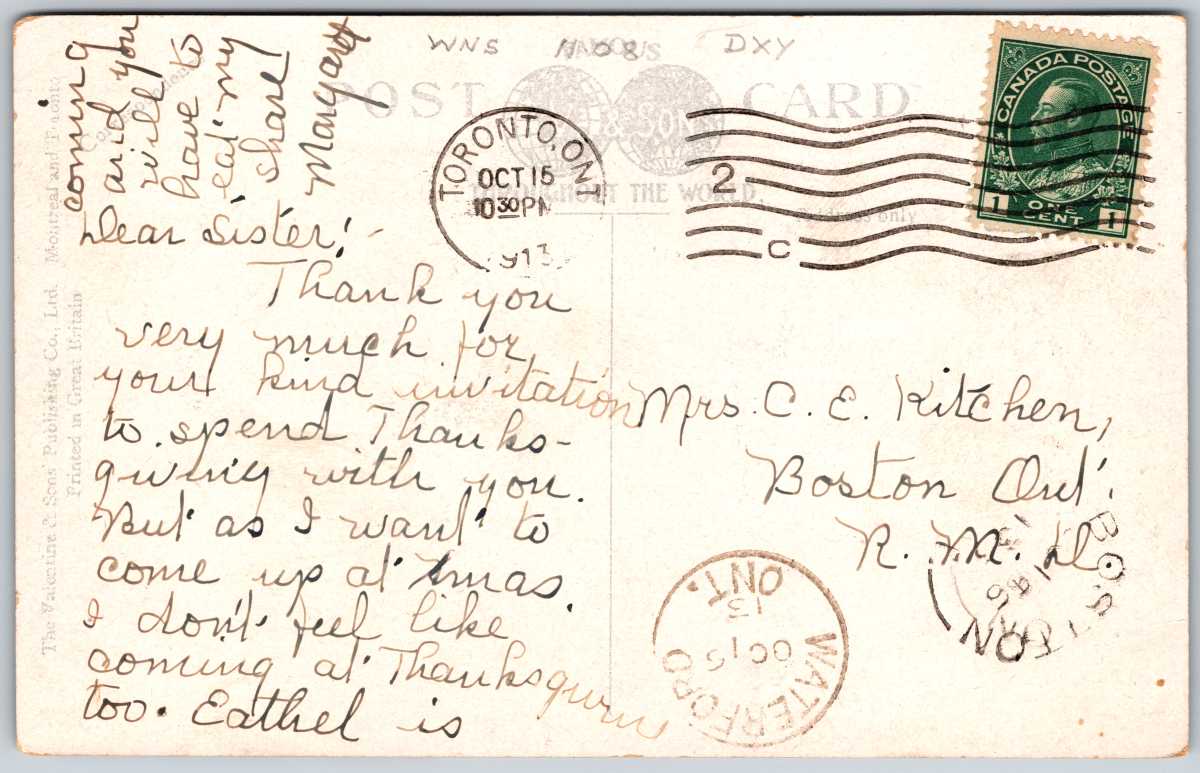 WNS 1108 DXY
POST CARD
FAMOUS
THROUGHOUT THE WORLD.
Address only
TORONTO, ONT
OCT 15
10 30 PM
1913
2
C
CANADA POSTAGE
1 ONE CENT 1
The Valentine & Sons' Publishing Co., Ltd. Montreal and Toronto
Printed in Great Britain
Dear Sister! -
Thank you
very much for
your kind invitation
to spend Thanks-
giving with you.
But as I want to
come up at Xmas.
I don't feel like
coming at Thanksgiving
too. Eathel is
coming
and you
will
have to
eat my
share!
Margaret
Mrs. C. E. Kitchen,
Boston Ont.
R. M. D
WATERFORD
OC 15
13
ONT.
BOSTON
ON